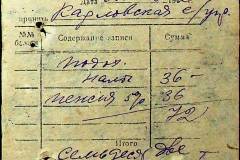 Дата
Карловская с/упр.
принять
№№ Содержание записи Сумма
подох.
налог 36-
пенсия 5% 36
72
Итого
Семьдесят две